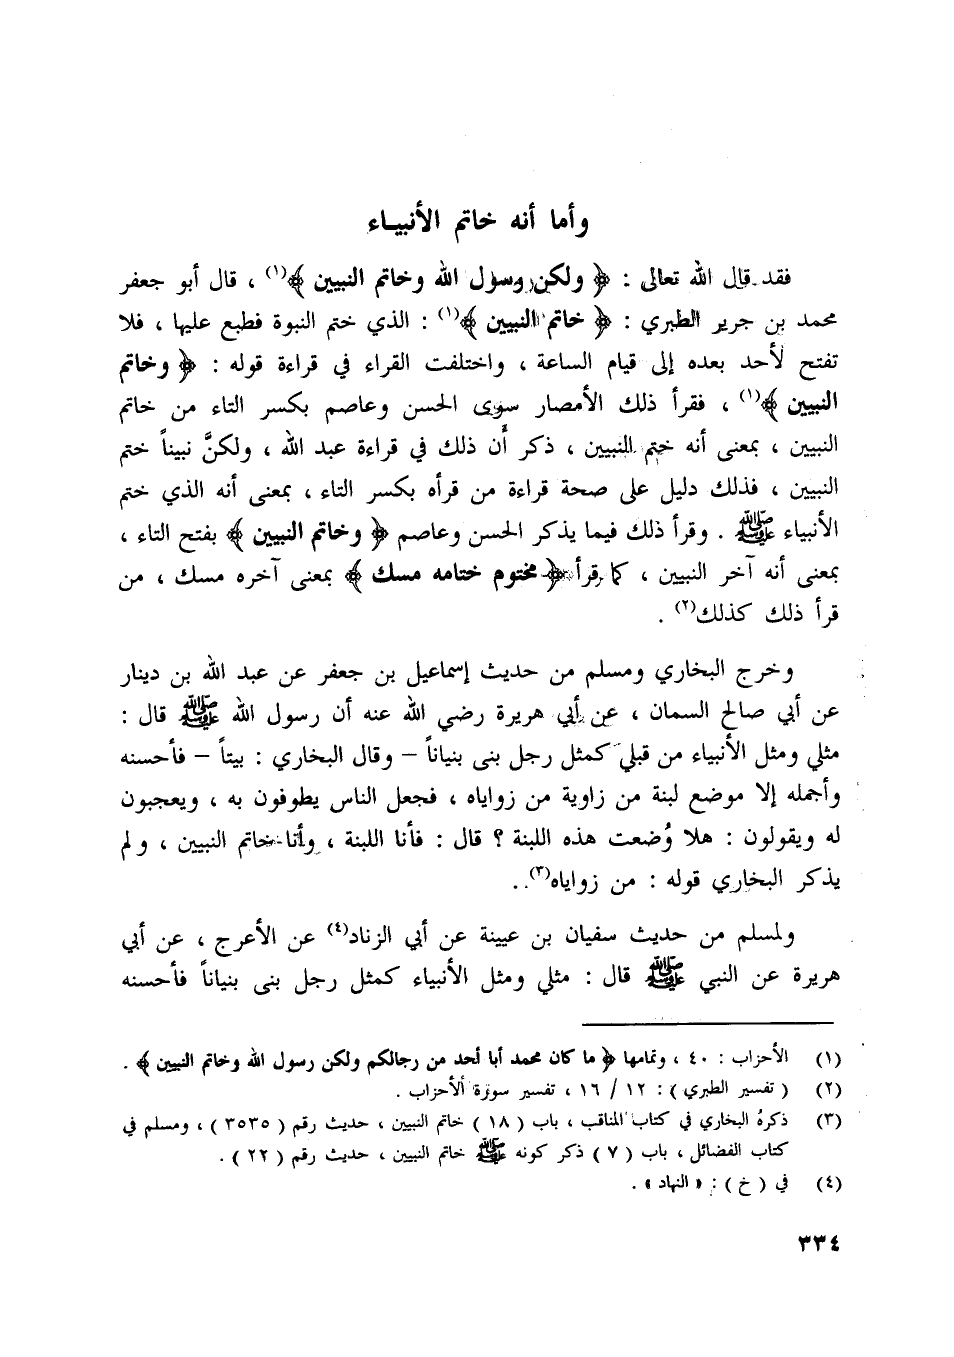 وأما أنه خاتم الأنبياء
فقد قال الله تعالى : ﴿ ولكن رسول الله وخاتم النبيين ﴾(١) ، قال أبو جعفر
محمد بن جرير الطبري : ﴿ خاتم النبيين ﴾(١) : الذي ختم النبوة فطبع عليها ، فلا
تفتح لأحد بعده إلى قيام الساعة ، واختلفت القراء في قراءة قوله : ﴿ وخاتم
النبيين ﴾(١) ، فقرأ ذلك الأمصار سوى الحسن وعاصم بكسر التاء من خاتم
النبيين ، بمعنى أنه ختم النبيين ، ذكر أن ذلك في قراءة عبد الله ، ولكنَّ نبيناً ختم
النبيين ، فذلك دليل على صحة قراءة من قرأه بكسر التاء ، بمعنى أنه الذي ختم
الأنبياء ﷺ . وقرأ ذلك فيما يذكر الحسن وعاصم ﴿ وخاتم النبيين ﴾ بفتح التاء ،
بمعنى أنه آخر النبيين ، كما قرأ ﴿ مختوم ختامه مسك ﴾ بمعنى آخره مسك ، من
قرأ ذلك كذلك(٢) .
وخرج البخاري ومسلم من حديث إسماعيل بن جعفر عن عبد الله بن دينار
عن أبي صالح السمان ، عن أبي هريرة رضي الله عنه أن رسول الله ﷺ قال :
مثلي ومثل الأنبياء من قبلي كمثل رجل بنى بنياناً – وقال البخاري : بيتاً – فأحسنه
وأجمله إلا موضع لبنة من زاوية من زواياه ، فجعل الناس يطوفون به ، ويعجبون
له ويقولون : هلا وُضعت هذه اللبنة ؟ قال : فأنا اللبنة ، وأنا خاتم النبيين ، ولم
يذكر البخاري قوله : من زواياه(٣) .
ولمسلم من حديث سفيان بن عيينة عن أبي الزناد(٤) عن الأعرج ، عن أبي
هريرة عن النبي ﷺ قال : مثلي ومثل الأنبياء كمثل رجل بنى بنياناً فأحسنه
(١) الأحزاب : ٤٠ ، وتمامها ﴿ ما كان محمد أبا أحد من رجالكم ولكن رسول الله وخاتم النبيين ﴾ .
(٢) ( تفسير الطبري ) : ١٢ / ١٦ ، تفسير سورة الأحزاب .
(٣) ذكره البخاري في كتاب المناقب ، باب ( ١٨ ) خاتم النبيين ، حديث رقم ( ٣٥٣٥ ) ، ومسلم في
كتاب الفضائل ، باب ( ٧ ) ذكر كونه ﷺ خاتم النبيين ، حديث رقم ( ٢٢ ) .
(٤) في ( خ ) : « النهاد » .
٣٣٤